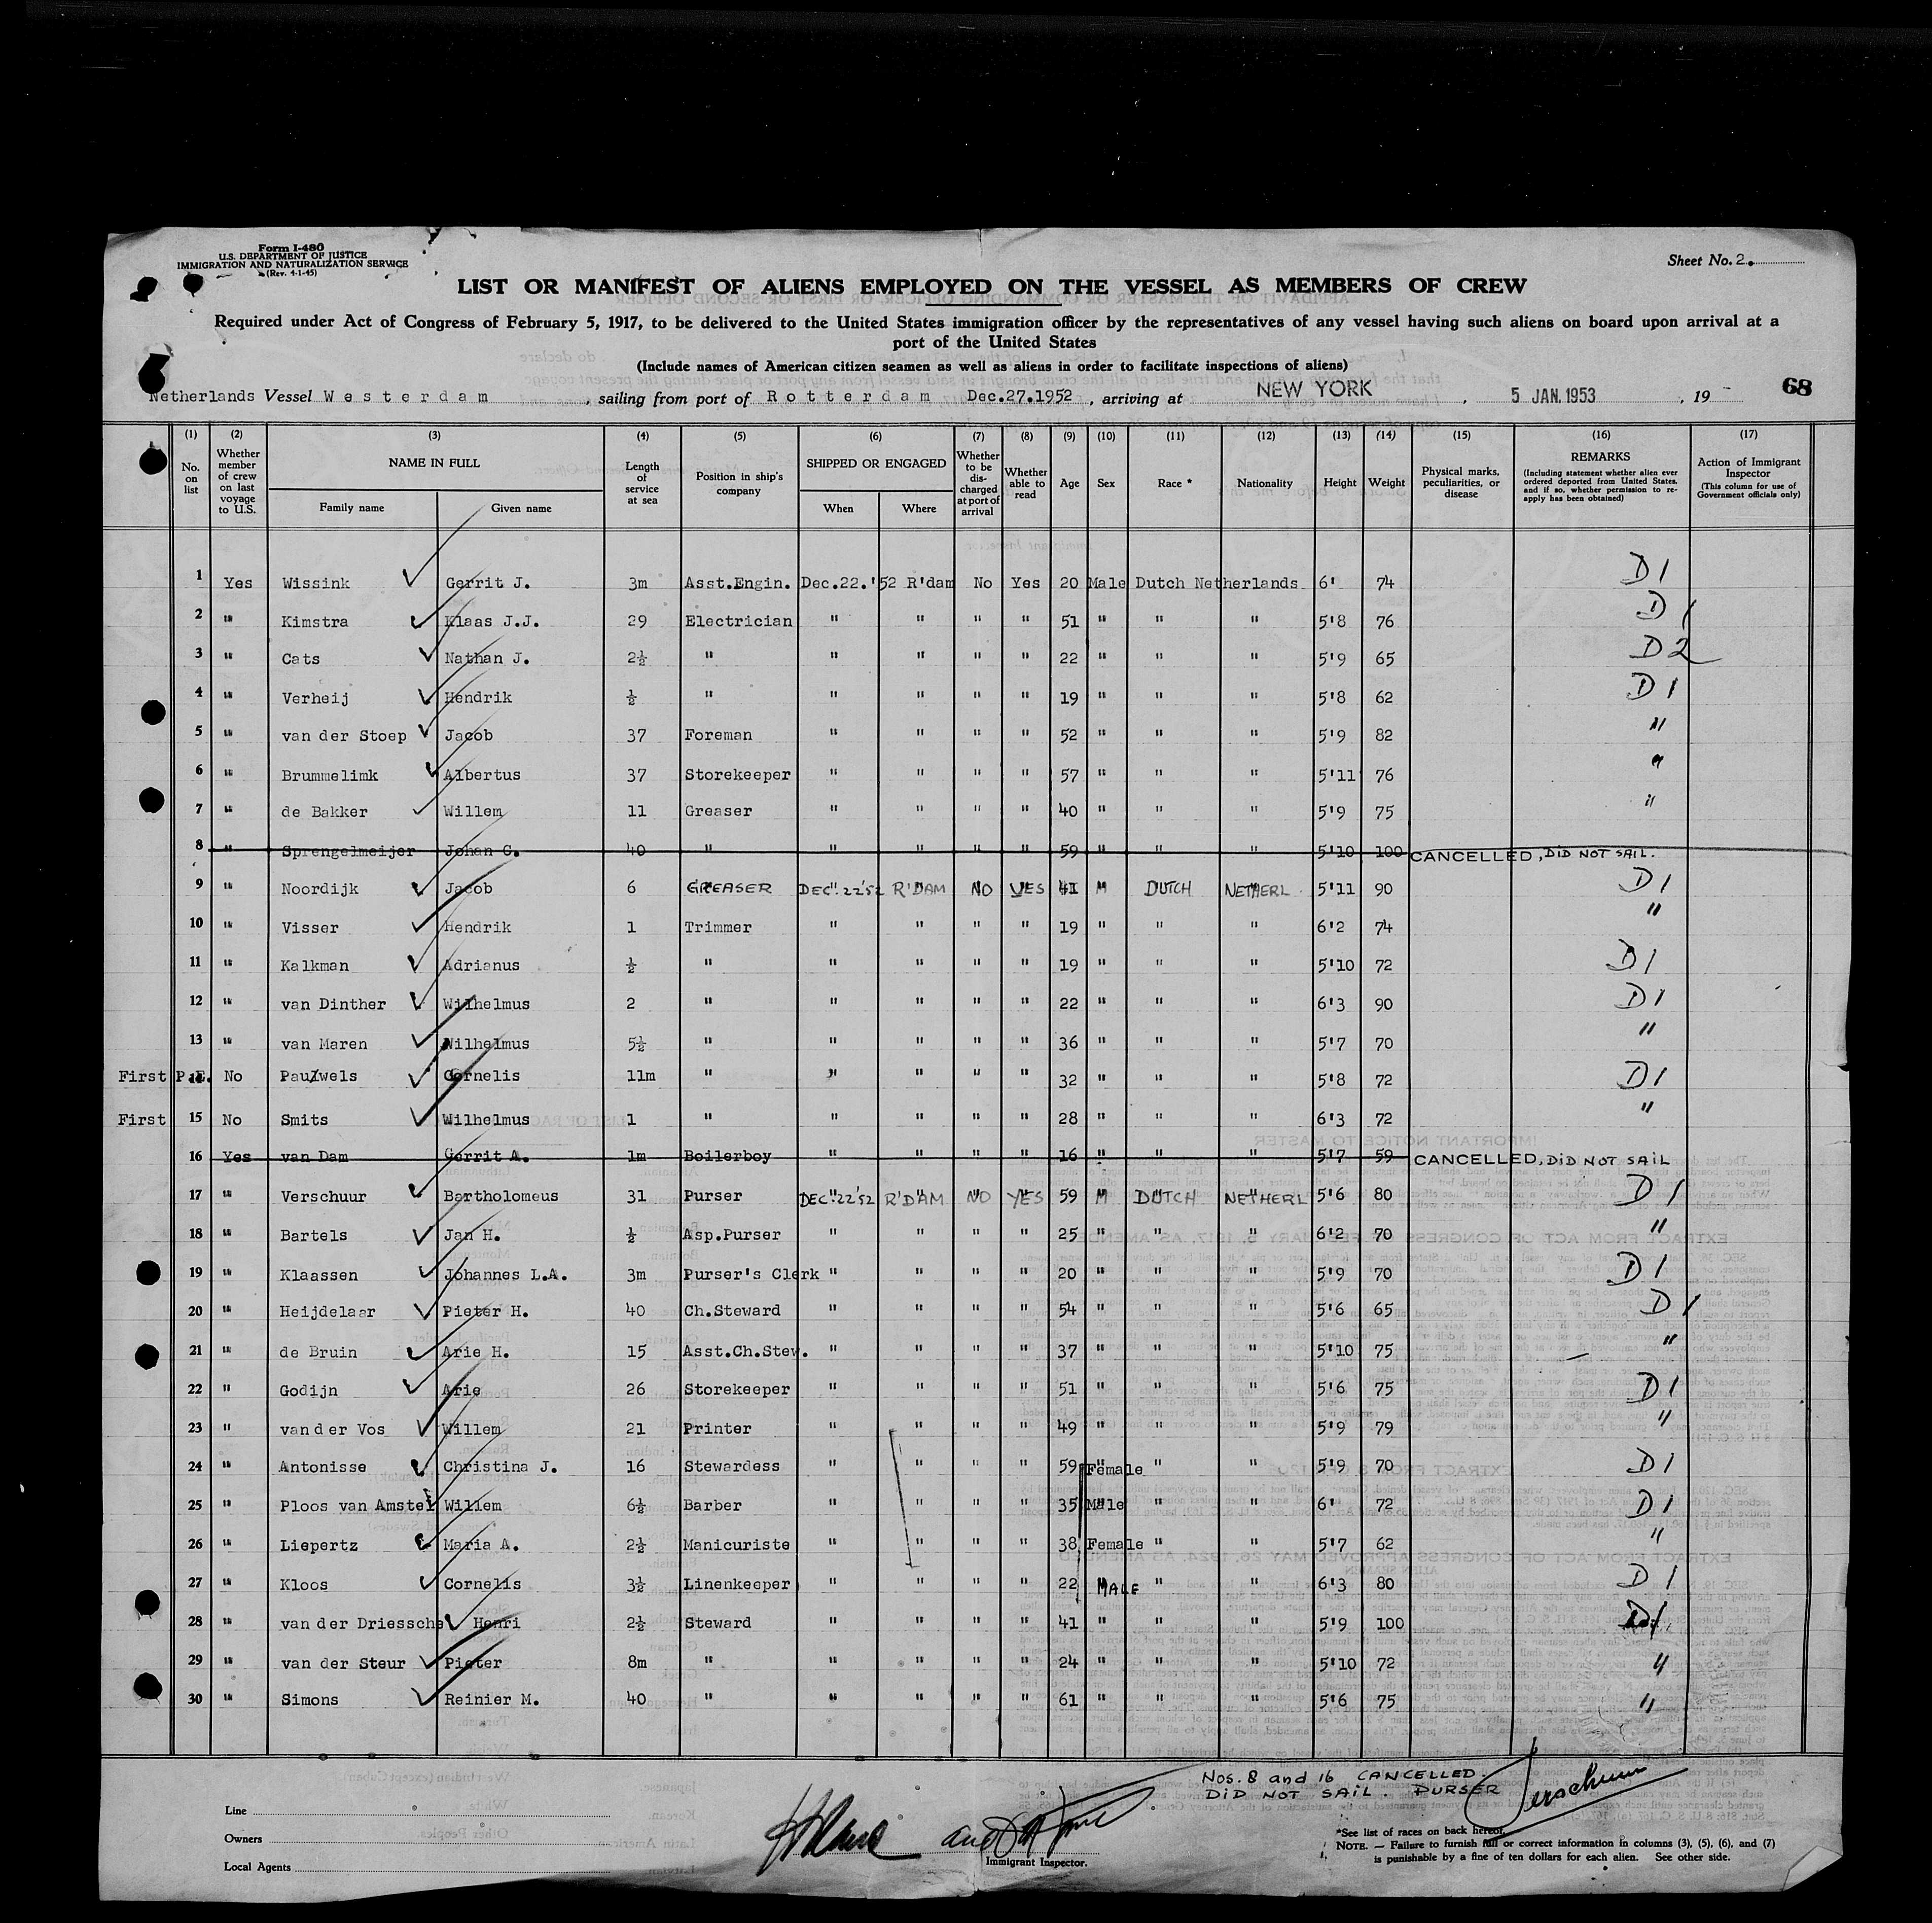 Form I-480
U.S. DEPARTMENT OF JUSTICE
IMMIGRATION AND NATURALIZATION SERVICE
(Rev. 4-1-45)
Sheet No. 2.
LIST OR MANIFEST OF ALIENS EMPLOYED ON THE VESSEL AS MEMBERS OF CREW
Required under Act of Congress of February 5, 1917, to be delivered to the United States immigration officer by the representatives of any vessel having such aliens on board upon arrival at a
port of the United States
(Include names of American citizen seamen as well as aliens in order to facilitate inspections of aliens)
68
Netherlands Vessel Westerdam, sailing from port of Rotterdam Dec.27.1952, arriving at NEW YORK, 5 JAN. 1953, 19
(1) (2) (3) (4) (5) (6) (7) (8) (9) (10) (11) (12) (13) (14) (15) (16) (17)
No. on list
Whether member of crew on last voyage to U.S.
NAME IN FULL
Family name Given name
Length of service at sea
Position in ship's company
SHIPPED OR ENGAGED
When Where
Whether to be discharged at port of arrival
Whether able to read
Age
Sex
Race *
Nationality
Height
Weight
Physical marks, peculiarities, or disease
REMARKS
(Including statement whether alien ever ordered deported from United States, and if so, whether permission to re-apply has been obtained)
Action of Immigrant Inspector
(This column for use of Government officials only)
1 Yes Wissink Gerrit J. 3m Asst.Engin. Dec.22.'52 R'dam No Yes 20 Male Dutch Netherlands 6' 74 D1
2 " Kimstra Klaas J.J. 29 Electrician " " " " 51 " " " 5'8 76 D1
3 " Cats Nathan J. 2½ " " " " " 22 " " " 5'9 65 D2
4 " Verheij Hendrik ½ " " " " " 19 " " " 5'8 62 D1
5 " van der Stoep Jacob 37 Foreman " " " " 52 " " " 5'9 82 "
6 " Brummelimk Albertus 37 Storekeeper " " " " 57 " " " 5'11 76 "
7 " de Bakker Willem 11 Greaser " " " " 40 " " " 5'9 75 "
8 " Sprengelmeijer Johan C. 40 " " " " " 59 " " " 5'10 100 CANCELLED, DID NOT SAIL.
9 " Noordijk Jacob 6 GREASER DEC. 22'52 R'DAM NO YES 41 M DUTCH NETHERL 5'11 90 D1
10 " Visser Hendrik 1 Trimmer " " " " 19 " " " 6'2 74 "
11 " Kalkman Adrianus ½ " " " " " 19 " " " 5'10 72 D1
12 " van Dinther Wilhelmus 2 " " " " " 22 " " " 6'3 90 D1
13 " van Maren Wilhelmus 5½ " " " " " 36 " " " 5'7 70 "
First P.E. No Pauwels Cornelis 11m " " " " " 32 " " " 5'8 72 D1
First 15 No Smits Wilhelmus 1 " " " " " 28 " " " 6'3 72 "
16 Yes van Dam Gerrit A. 1m Boilerboy " " " " 16 " " " 5'7 59 CANCELLED, DID NOT SAIL
17 " Verschuur Bartholomeus 31 Purser DEC. 22'52 R'DAM NO YES 59 M DUTCH NETHERL 5'6 80 D1
18 " Bartels Jan H. ½ Asp.Purser " " " " 25 " " " 6'2 70 "
19 " Klaassen Johannes L.A. 3m Purser's Clerk " " " " 20 " " " 5'9 70 D1
20 " Heijdelaar Pieter H. 40 Ch.Steward " " " " 54 " " " 5'6 65 D1
21 " de Bruin Arie H. 15 Asst.Ch.Stew. " " " " 37 " " " 5'10 75 "
22 " Godijn Arie 26 Storekeeper " " " " 51 " " " 5'6 75 D1
23 " van der Vos Willem 21 Printer " " " " 49 " " " 5'9 79 "
24 " Antonisse Christina J. 16 Stewardess " " " " 59 Female " " 5'9 70 D1
25 " Ploos van Amstel Willem 6½ Barber " " " " 35 Male " " 6' 72 D1
26 " Liepertz Maria A. 2½ Manicuriste " " " " 38 Female " " 5'7 62 "
27 " Kloos Cornelis 3½ Linenkeeper " " " " 22 MALE " " 6'3 80 D1
28 " van der Driessche Henri 2½ Steward " " " " 41 " " " 5'9 100 D1
29 " van der Steur Pieter 8m " " " " " 24 " " " 5'10 72 "
30 " Simons Reinier M. 40 " " " " " 61 " " " 5'6 75 "
Nos. 8 and 16 CANCELLED.
DID NOT SAIL. PURSER Verschuur
Line
Owners
Local Agents
and
Immigrant Inspector.
*See list of races on back hereof.
NOTE. — Failure to furnish full or correct information in columns (3), (5), (6), and (7)
is punishable by a fine of ten dollars for each alien. See other side.